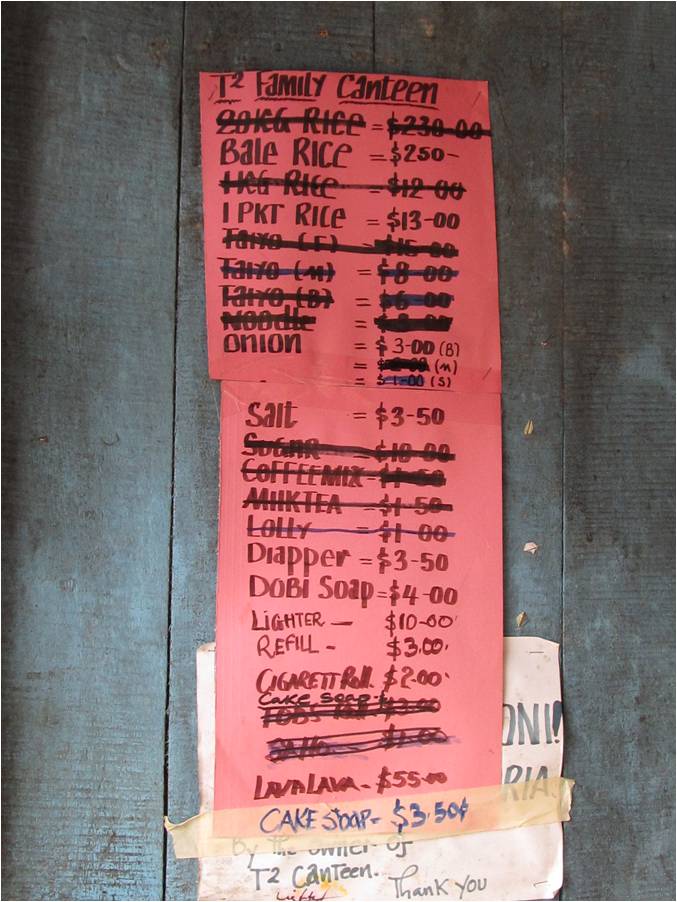 T² Family Canteen
20KG RICE = $230-00
Bale RICE = $250-
1KG RICE = $12-00
1 PKT RICE = $13-00
Taiyo (F) $15-00
Taiyo (M) = $8-00
Taiyo (B) = $6-00
Noodle =
Onion = $3-00 (B)
= (M)
= $1-00 (S)
Salt = $3-50
Sugar = $10-00
COFFEEMIX = $1-50
MIlKTEA = $1-50
LOLLY = $1-00
Diapper = $3-50
DOBI Soap = $4-00
LIGHTER — $10-00
REFILL - $3.00
CIGARETT Roll. $2.00
Cake Soap
$3.00
LAVALAVA - $55-00
CAKE SOAP - $3.50¢
ONI!
RIA
By the owner of
T² Canteen.
Thank you